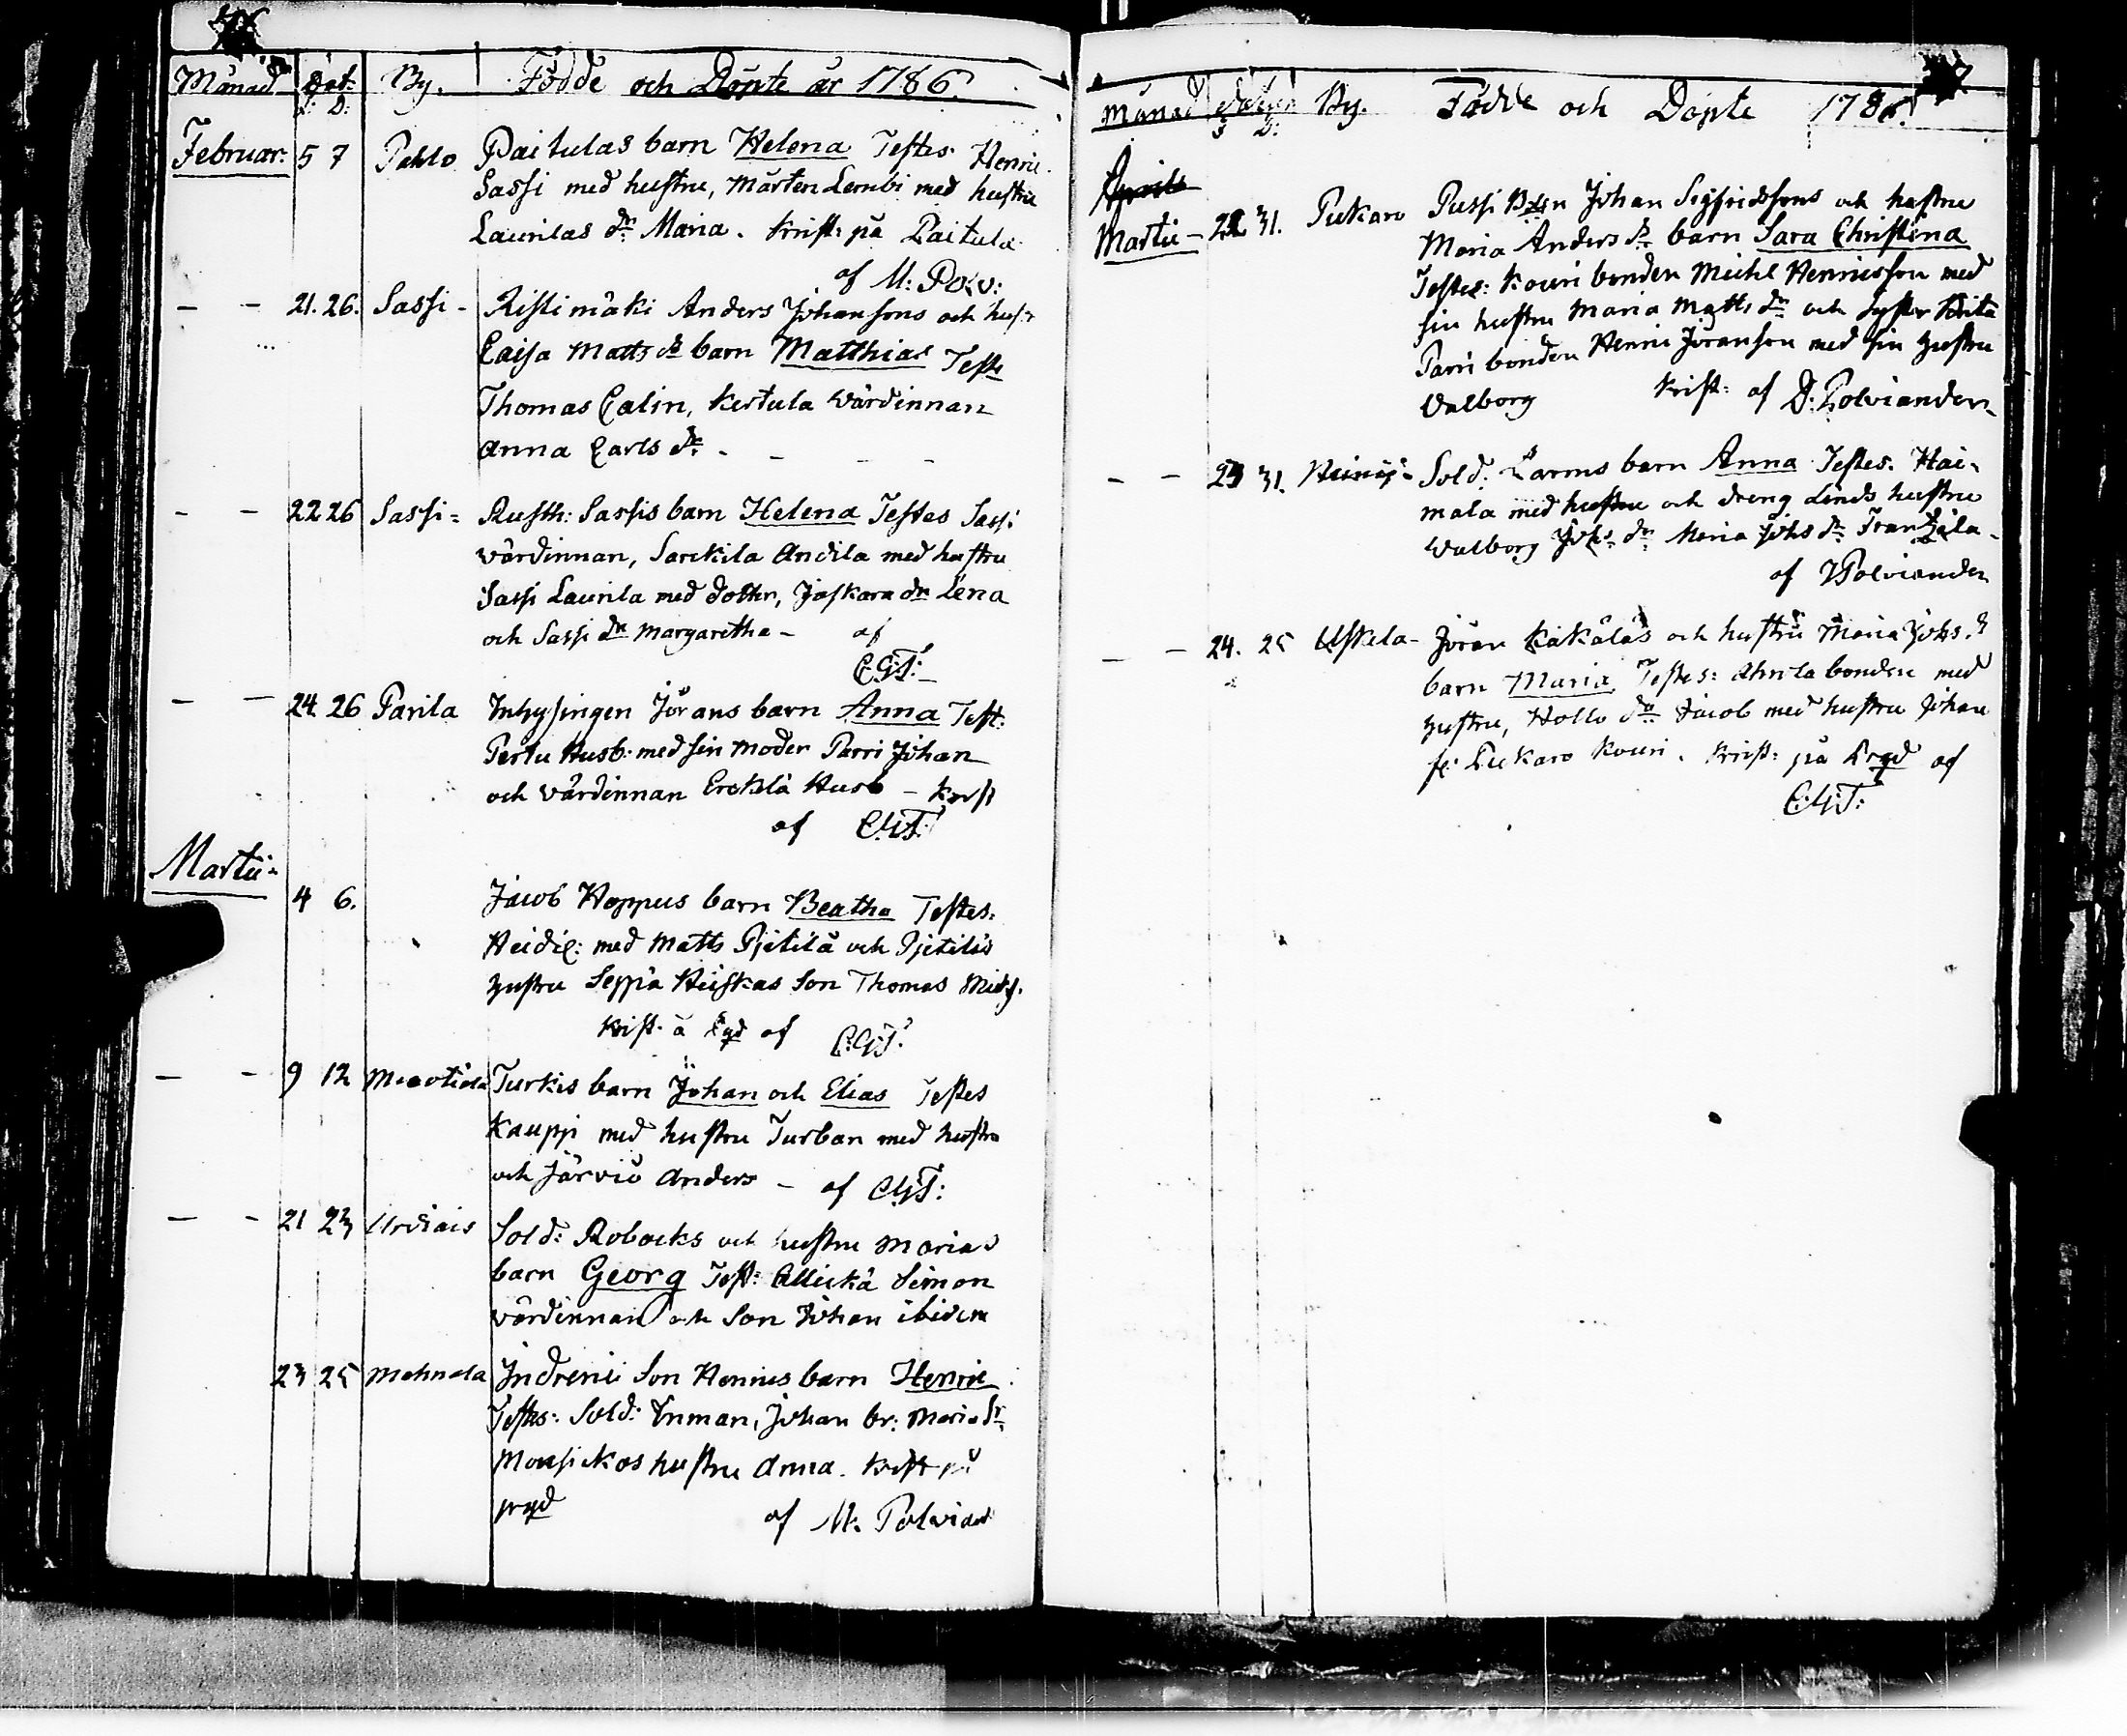 Månad Dat: By. Födde och Döpte år 1786.
f: D:
Februar: 5 7 Pahlo Paitulas barn Helena Testes Henric
Sassi med hustru, Mårten Lembi med hustru
Laurilas dr Maria. Krist: på Paitula
af M: Polv:
— — 21. 26. Sassi - Ristimäki Anders Johansons och hustr
Caisa Matts dr barn Matthias Teste
Thomas Calin, Kertula Wärdinnan
Anna Carls dr - - - -
- - 22 26 Sassi = Rusth: Sassis barn Helena Testes Sassi
wärdinnan, Sarckila Andila med hustru
Sassi Laurila med dotter, Jaskara dr Lena
och Sassi dr Margaretha - af
C.G.T:
- - 24 26 Parila Inhysingen Jörans barn Anna Test:
Pertu Husb: med sin moder Parri Johan
och wärdinnan Erckilä Husb - Krist
af CGT:
Martii-
4 6. Jacob Hoppus barn Beatha Testes:
med Matts Pjetilä och Pjetiläs
hustru Seppä Heiskas Son Thomas
Krist. å af C:G:T:
— - 9 12 Turkis barn Johan och Elias Testes
Kauppi med hustru Turban med hustru
och Järviö Anders - af CGT:
— - 21 23 Urdiais Sold: Robocks och hustru Marias
barn Georg Test: Simon
wärdinnan och Son Johan ibidem
23 25 Mahnala Indreni Son Henrics barn Henric
Testes: Sold: Enman, Johan br: Maria
hustru Anna. Krist på
af M. Polviand
Månad By. Födde och Döpte 1786.
f D:
Martii - 22 31. Pukaro Pussi Johan Sigfridssons och hustru
Maria Anders dr barn Sara Christina
Testes: Kouri bonden Michl Henricsson med
sin hustru Maria Matts dr och Syster Brita
Parri bonden Henric Jöranson med sin hustru
Valborg Krist: af D. Polviander
- - 23 31. Sold: Larms barn Anna Testes. Hai-
mala med hustru och dreng Linds hustru
Walborg Johs dr Maria Johs dr
af Polviander
— - 24. 25 Uskela - Jöran Kakäläs och hustru Maria Johs.
barn Maria Testes: Ahrila bonden med
hustru, Hollo dr Jacob med hustru Johan
Puckaro Kouri. Krist: på af
C:G:T: